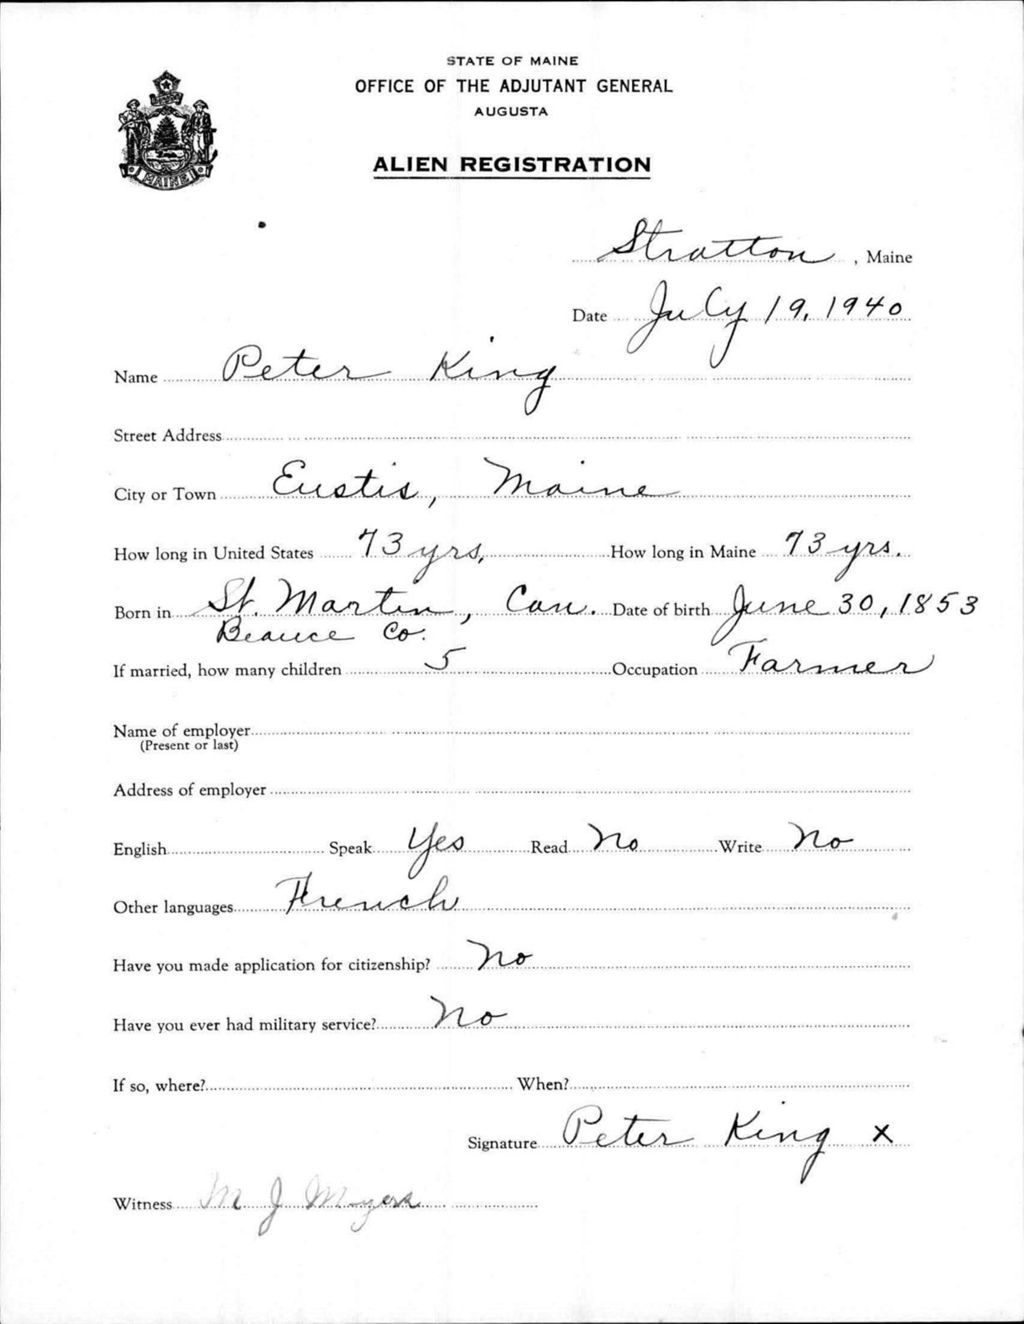 STATE OF MAINE
OFFICE OF THE ADJUTANT GENERAL
AUGUSTA
ALIEN REGISTRATION
MAINE
Stratton, Maine
Date July 19, 1940
Name Peter King
Street Address
City or Town Eustis, Maine
How long in United States 73 yrs, How long in Maine 73 yrs.
Born in St. Martin, Can. Date of birth June 30, 1853
Beauce Co.
If married, how many children 5 Occupation Farmer
Name of employer
(Present or last)
Address of employer
English Speak Yes Read No Write No
Other languages French
Have you made application for citizenship? No
Have you ever had military service? No
If so, where? When?
Signature Peter King x
Witness M J Myers